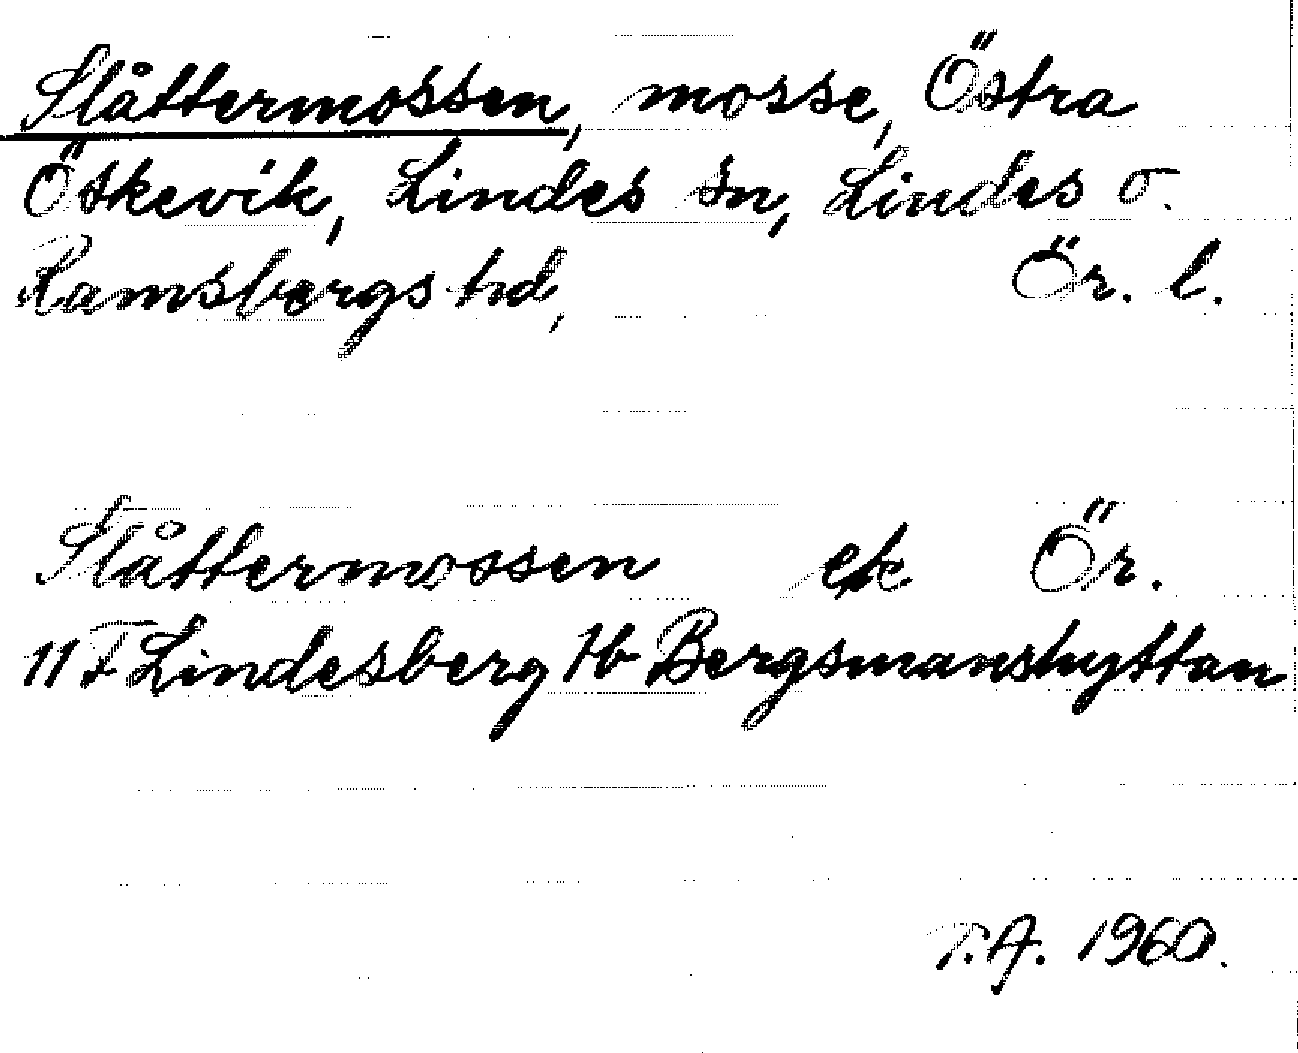 Slåttermossen, mosse, Östra
Öskevik, Lindes sn, Lindes o.
Ramsbergs hd, Ör. l.
Slåttermossen ek Ör.
11 F Lindesberg 4b Bergsmanshyttan
T.A. 1960.